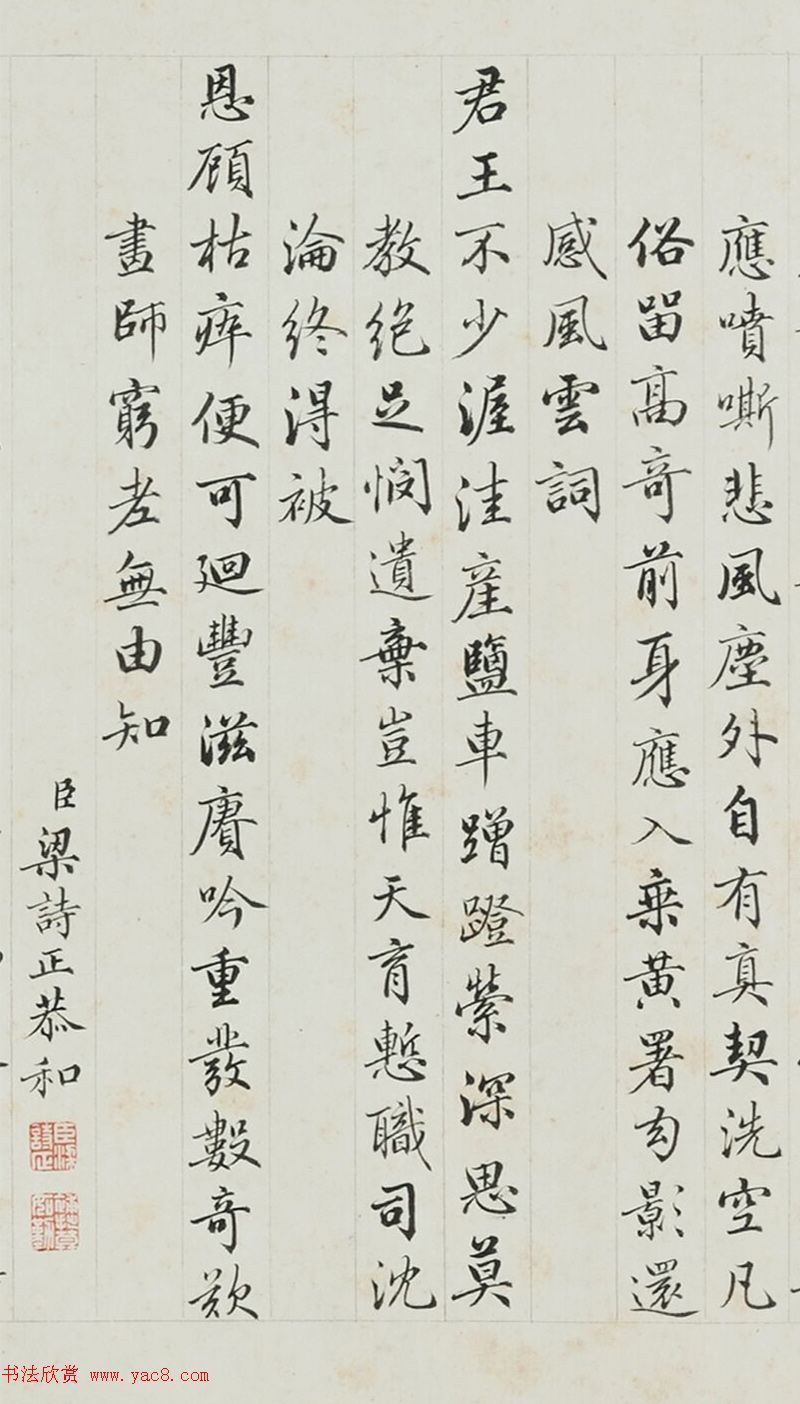 應噴嘶悲風塵外自有真契洗空凡
俗留高奇前身應入乗黃署勾影還
感風雲詞
君王不少渥洼產鹽車蹭蹬縈深思莫
教絶足憫遺棄豈惟天育慙職司沈
淪終得被
恩顧枯瘁便可廻豐滋賡吟重發數奇歎
畫師窮老無由知
臣梁詩正恭和
书法欣赏 www.yac8.com